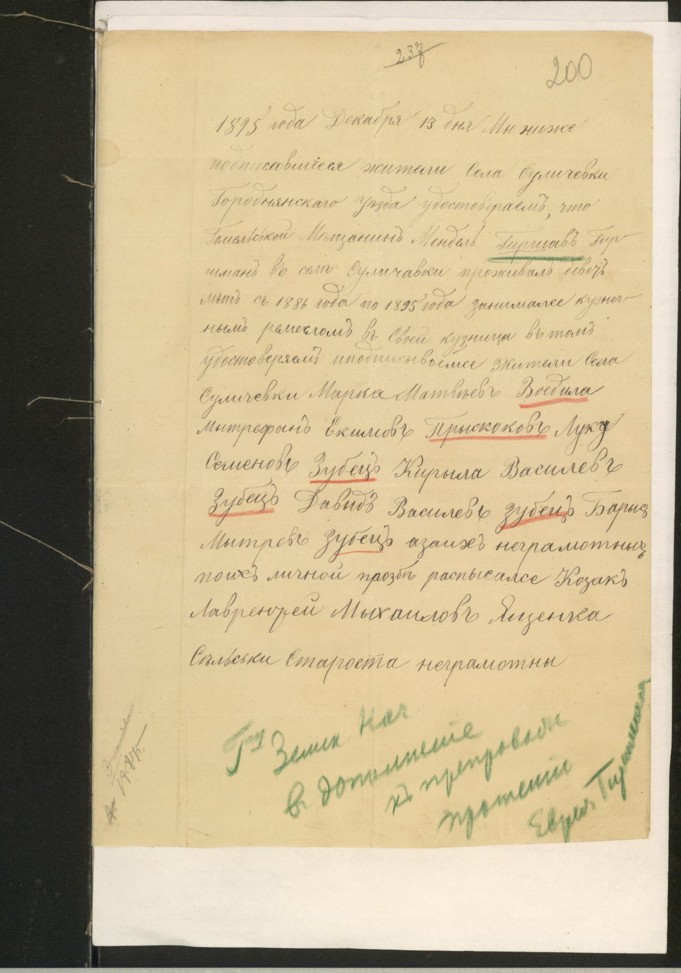 237
200
1895 года Декабря 13 дня Мы ниже
подписавшиеся жители Села Суличевки
Городнянскаго Уезда удостовераемъ, что
Гомельской Мещанинъ Мендель Гиршавъ Гир-
шманъ в селе Суличавки проживалъ деветь
летъ с 1886 года по 1895 года занималсе кузнеч-
нымъ ремесломъ въ своей кузница в томъ
удостоверяемъ и подписываемсе жители Села
Суличевки Марка Матвеевъ Воедила
Митрефанъ Екимовъ Прискоковъ Лука
Семеновъ Зубецъ Кирыла Василевъ
Зубецъ Давидъ Василевъ Зубецъ Барис
Мытревъ Зубецъ а за ихъ неграмотныхъ
по ихъ личной прозбе распысалсе Козакъ
Лаврентей Мыхаиловъ Ященка
Сельски Староста неграмотны
Гну Земск Нач
в дополнение
къ препровожд
прошению
Еврея Гиршмана
1885